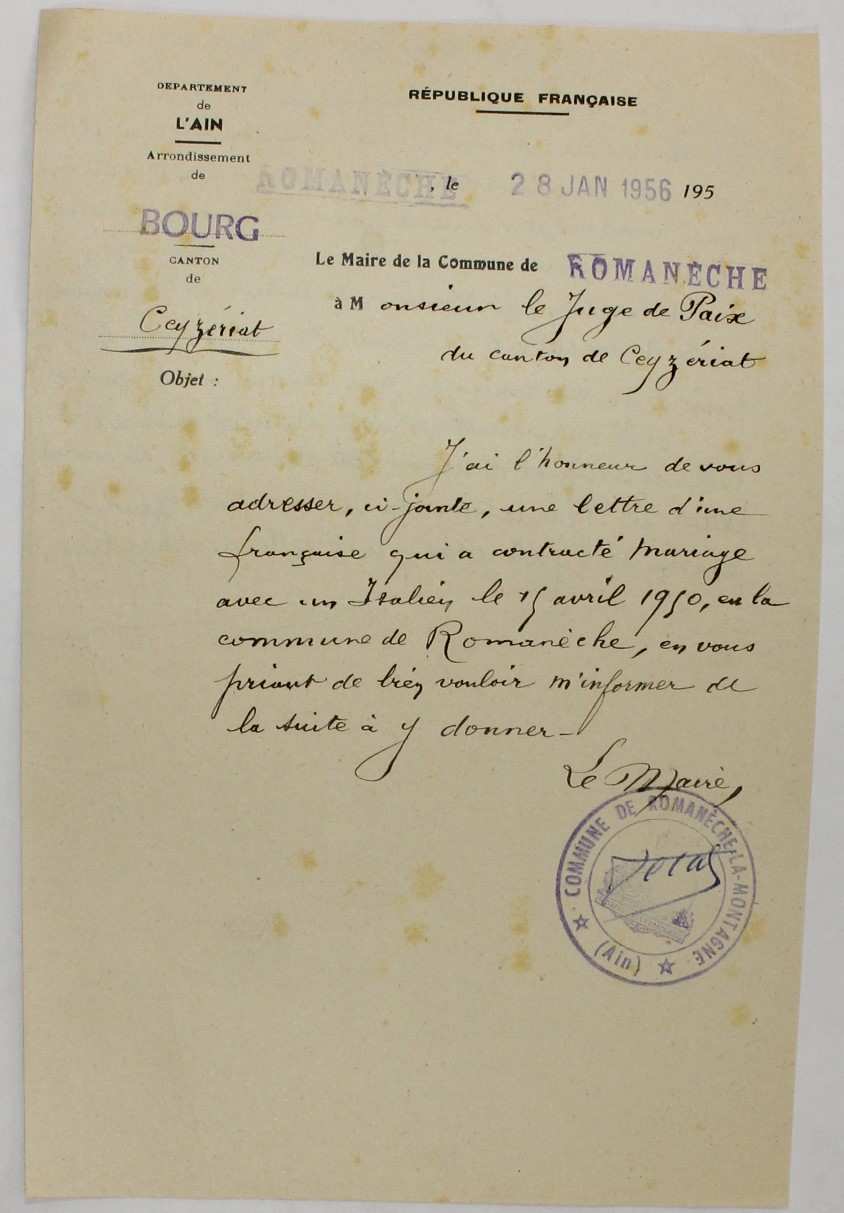 DEPARTEMENT
de
L'AIN
Arrondissement
de
BOURG
CANTON
de
Ceyzériat
Objet :
RÉPUBLIQUE FRANÇAISE
ROMANÈCHE, le 28 JAN 1956 195
Le Maire de la Commune de ROMANÈCHE
à Monsieur le Juge de Paix
du canton de Ceyzériat
J'ai l'honneur de vous
adresser, ci-jointe, une lettre d'une
française qui a contracté mariage
avec un Italien le 15 avril 1950, en la
commune de Romanèche, en vous
priant de bien vouloir m'informer de
la suite à y donner -
Le Maire,
COMMUNE DE ROMANÈCHE-LA-MONTAGNE
(Ain)